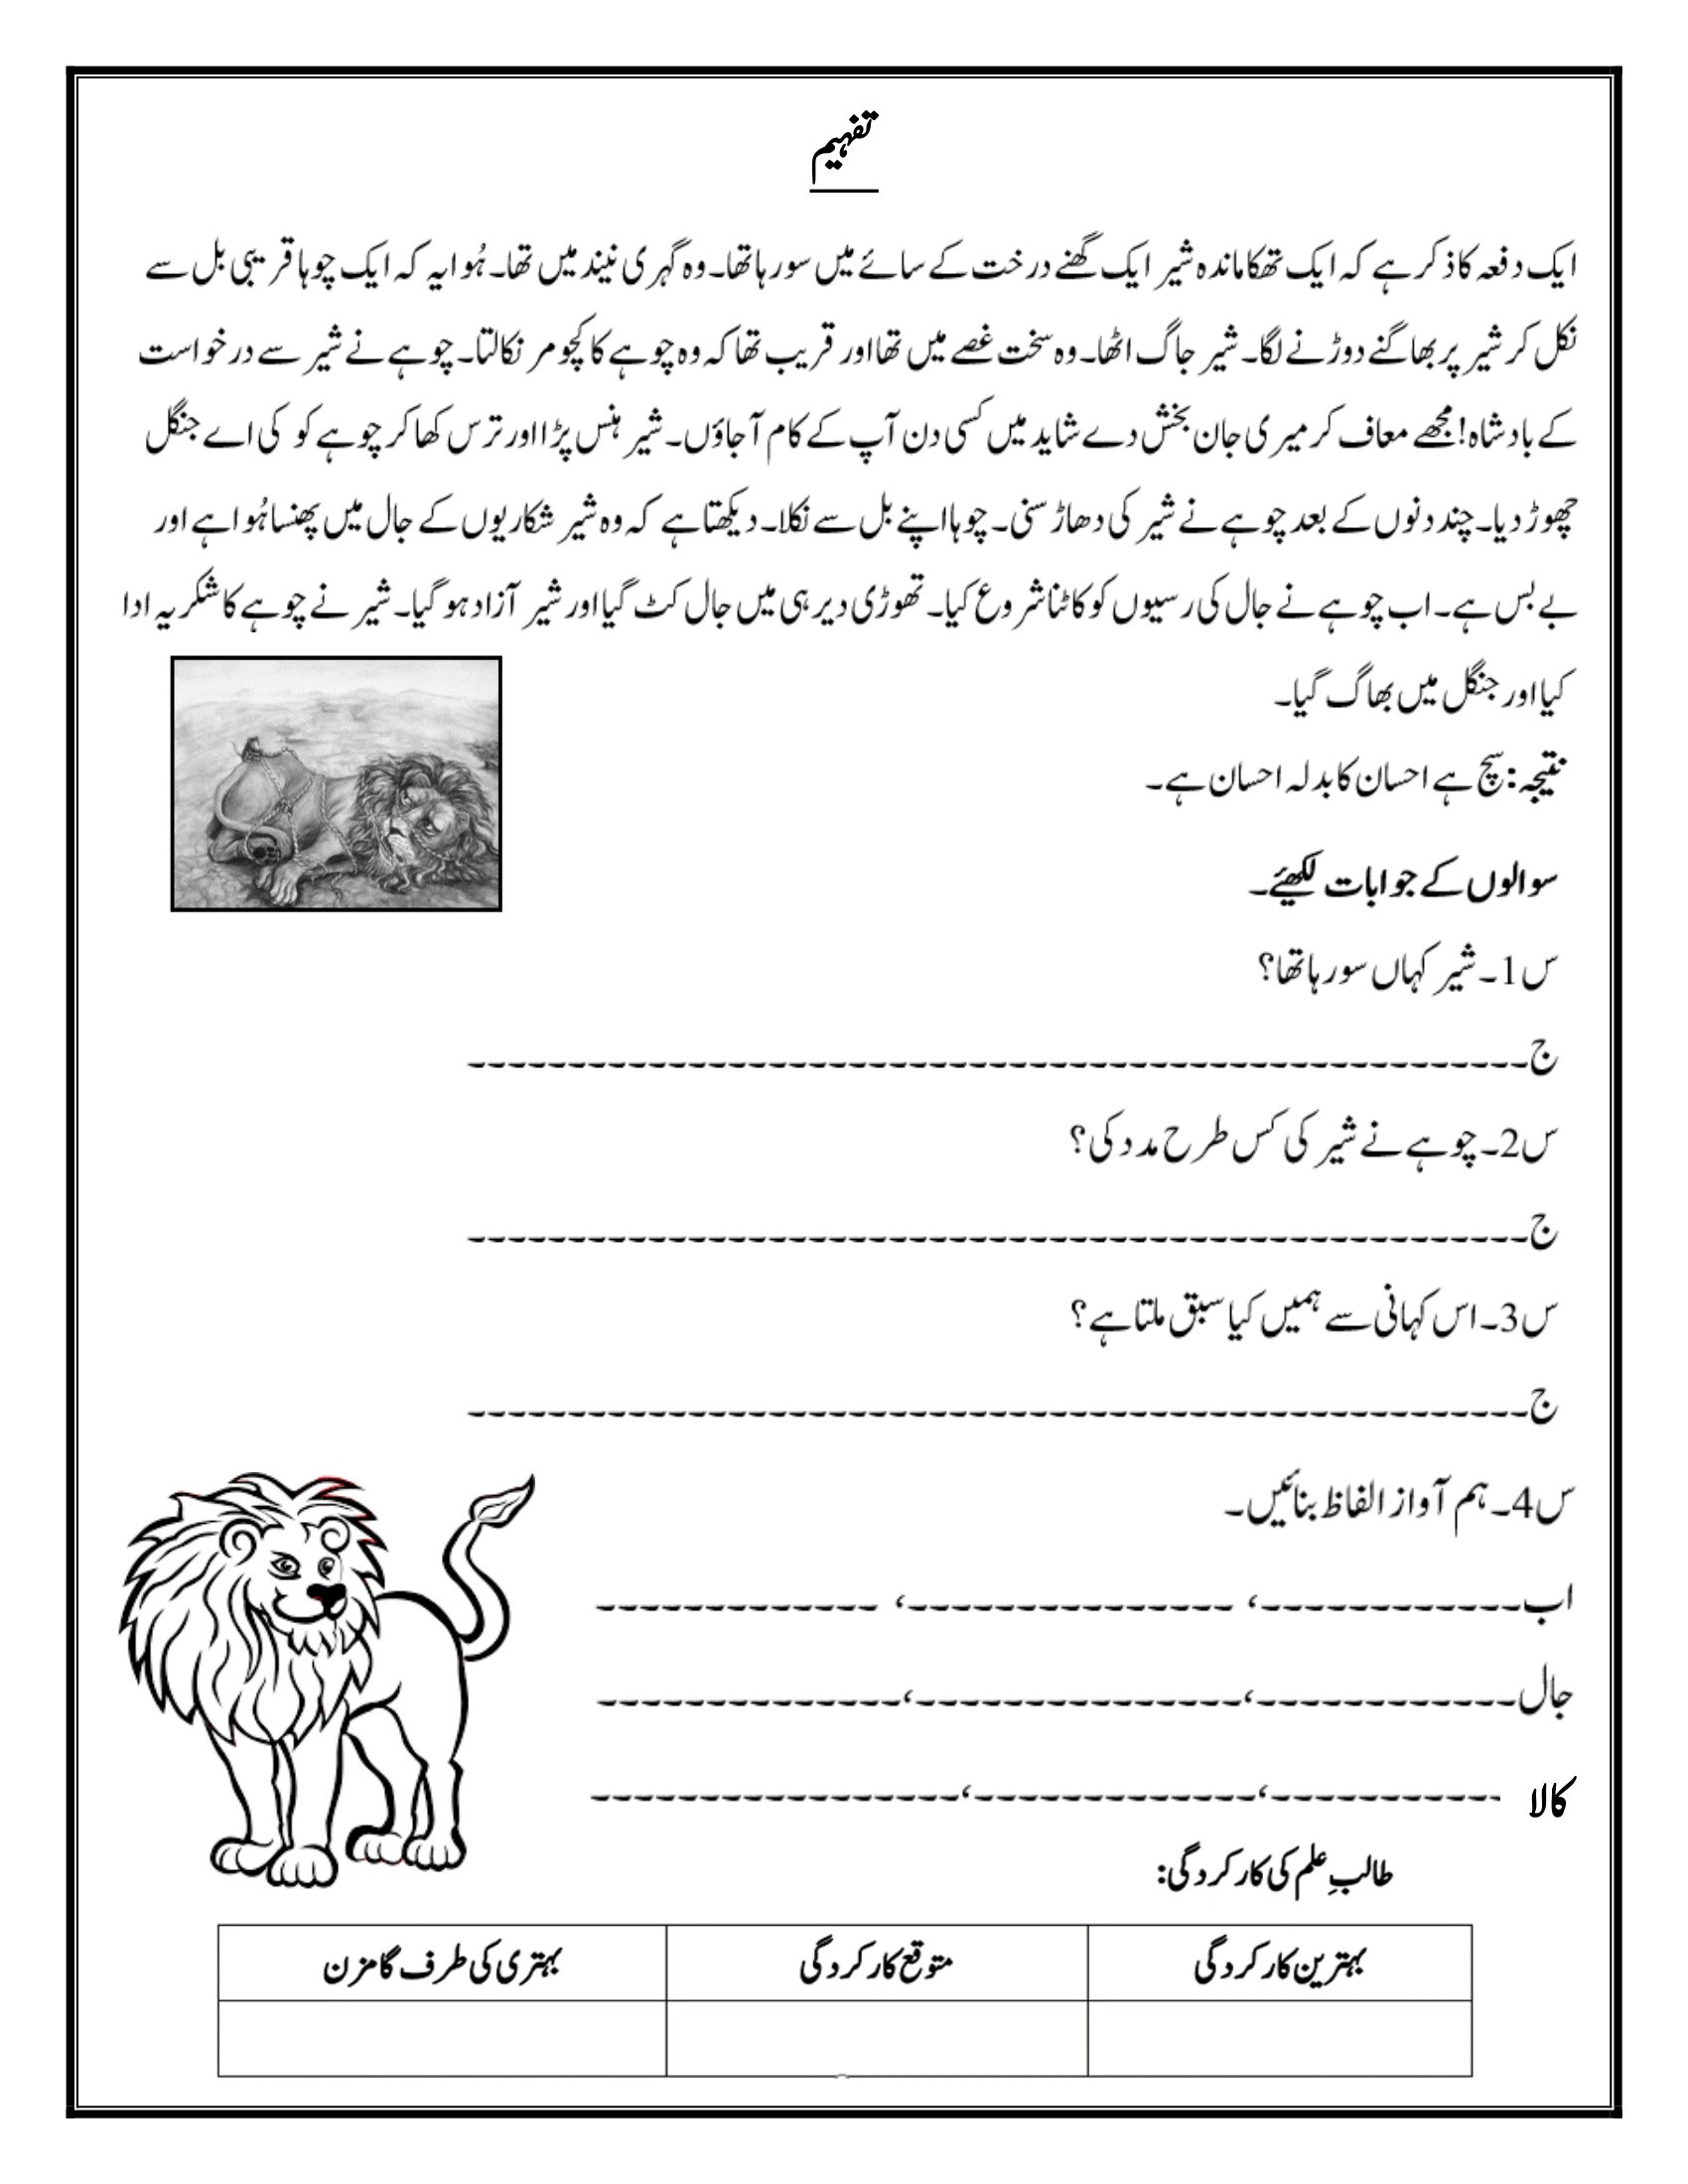 تفہیم
ایک دفعہ کا ذکر ہے کہ ایک تھکا ماندہ شیر ایک گھنے درخت کے سائے میں سو رہا تھا۔ وہ گہری نیند میں تھا۔ ہُوا یہ کہ ایک چوہا قریبی بل سے
نکل کر شیر پر بھاگنے دوڑنے لگا۔ شیر جاگ اٹھا۔ وہ سخت غصے میں تھا اور قریب تھا کہ وہ چوہے کا کچومر نکالتا۔ چوہے نے شیر سے درخواست
کے بادشاہ! مجھے معاف کر میری جان بخش دے شاید میں کسی دن آپ کے کام آ جاؤں۔ شیر ہنس پڑا اور ترس کھا کر چوہے کو کی اے جنگل
چھوڑ دیا۔ چند دنوں کے بعد چوہے نے شیر کی دھاڑ سنی۔ چوہا اپنے بل سے نکلا۔ دیکھتا ہے کہ وہ شیر شکاریوں کے جال میں پھنسا ہُوا ہے اور
بے بس ہے۔ اب چوہے نے جال کی رسیوں کو کاٹنا شروع کیا۔ تھوڑی دیر ہی میں جال کٹ گیا اور شیر آزاد ہو گیا۔ شیر نے چوہے کا شکریہ ادا
کیا اور جنگل میں بھاگ گیا۔
نتیجہ: سچ ہے احسان کا بدلہ احسان ہے۔
سوالوں کے جوابات لکھیئے۔
س1۔ شیر کہاں سو رہا تھا؟
ج۔۔۔۔۔۔۔۔۔۔۔۔۔۔۔۔۔۔۔۔۔۔۔۔۔۔۔۔۔۔۔۔۔۔۔۔۔۔۔۔۔۔۔۔۔۔۔۔
س2۔ چوہے نے شیر کی کس طرح مدد کی؟
ج۔۔۔۔۔۔۔۔۔۔۔۔۔۔۔۔۔۔۔۔۔۔۔۔۔۔۔۔۔۔۔۔۔۔۔۔۔۔۔۔۔۔۔۔۔۔۔۔
س3۔ اس کہانی سے ہمیں کیا سبق ملتا ہے؟
ج۔۔۔۔۔۔۔۔۔۔۔۔۔۔۔۔۔۔۔۔۔۔۔۔۔۔۔۔۔۔۔۔۔۔۔۔۔۔۔۔۔۔۔۔۔۔۔۔
س4۔ ہم آواز الفاظ بنائیں۔
اب۔۔۔۔۔۔۔۔۔۔۔۔، ۔۔۔۔۔۔۔۔۔۔۔۔۔۔، ۔۔۔۔۔۔۔۔۔۔۔۔
جال۔۔۔۔۔۔۔۔۔۔۔۔،۔۔۔۔۔۔۔۔۔۔۔۔۔۔،۔۔۔۔۔۔۔۔۔۔۔۔۔
کالا ۔۔۔۔۔۔۔۔۔۔۔،۔۔۔۔۔۔۔۔۔۔۔۔،۔۔۔۔۔۔۔۔۔۔۔۔۔۔۔۔
طالبِ علم کی کارکردگی:
بہترین کارکردگی متوقع کارکردگی بہتری کی طرف گامزن